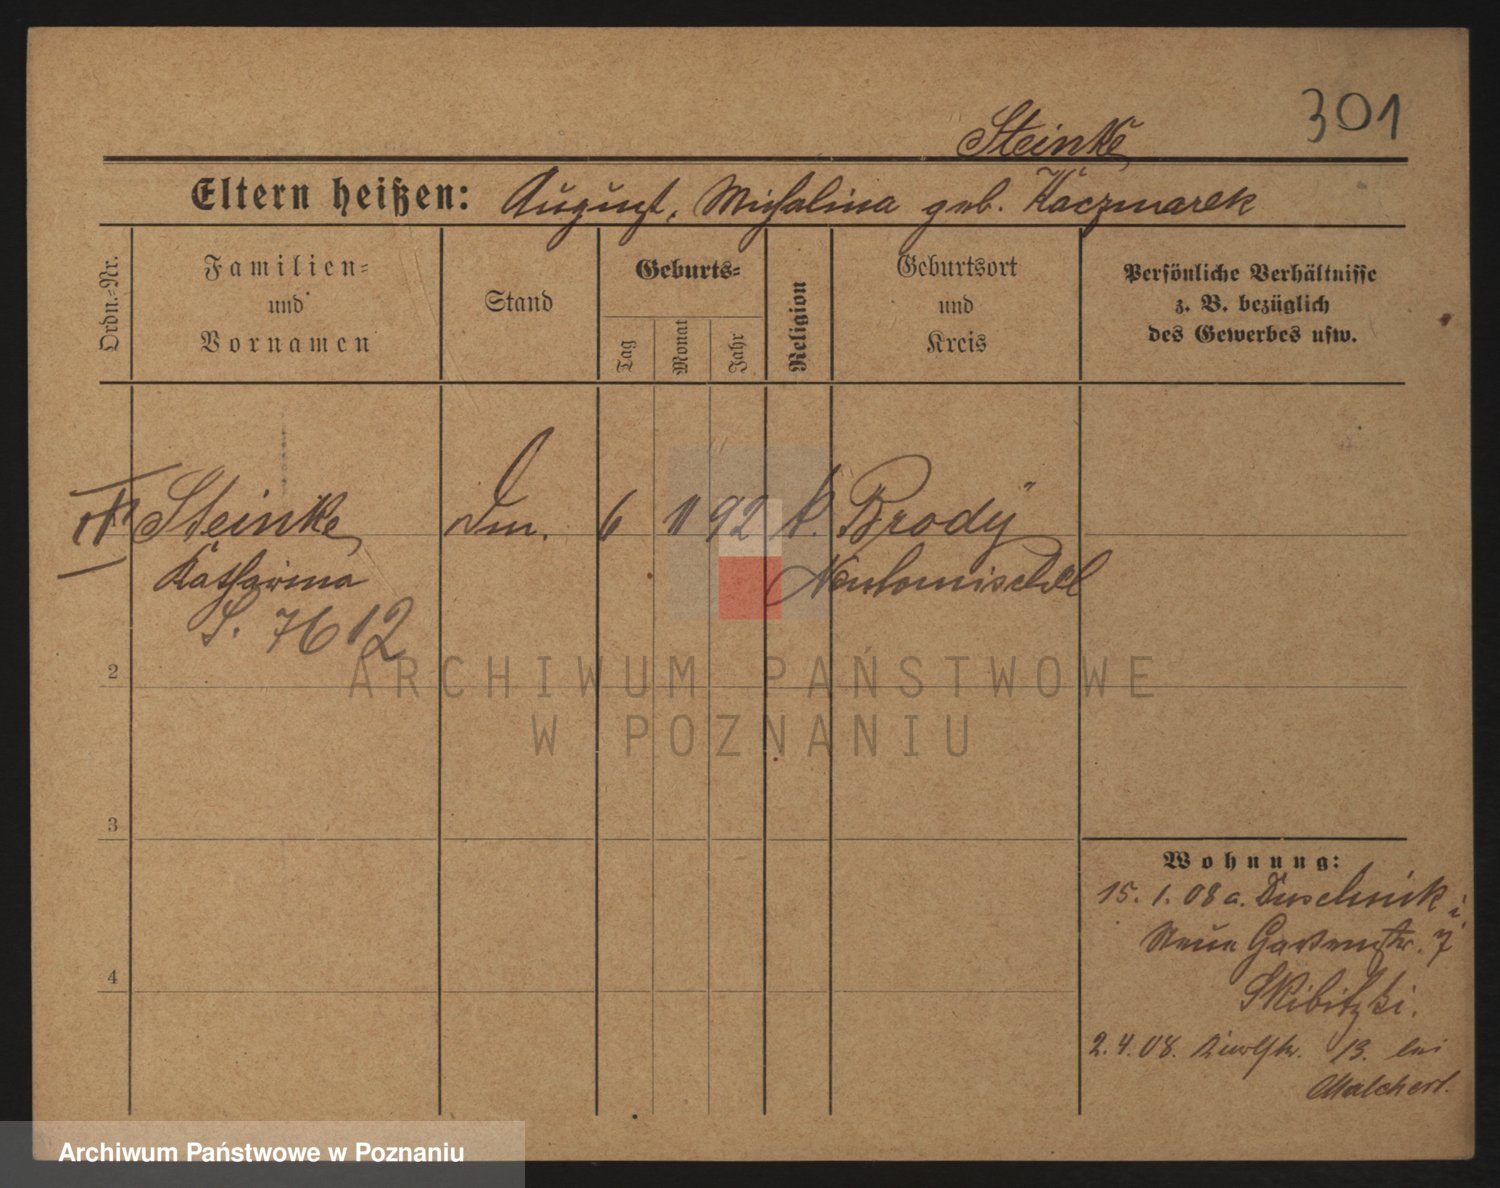 301
Steinke
Eltern heißen: August, Michalina geb. Kaczmarek
Ordn.-Nr.
Familien- und Vornamen
Stand
Geburts-
Tag
Monat
Jahr
Religion
Geburtsort und Kreis
Persönliche Verhältnisse
z. B. bezüglich
des Gewerbes usw.
Steinke 6 11 92 k. Brody
Katharina Neutomischel
S. 7612
2
3
4
Wohnung:
15. 1. 08 a. Duschnik
Neue Gartenstr. 7
Skibitzki.
2. 4. 08. 13. bei
Malchert.
ARCHIWUM PAŃSTWOWE
W POZNANIU
Archiwum Państwowe w Poznaniu